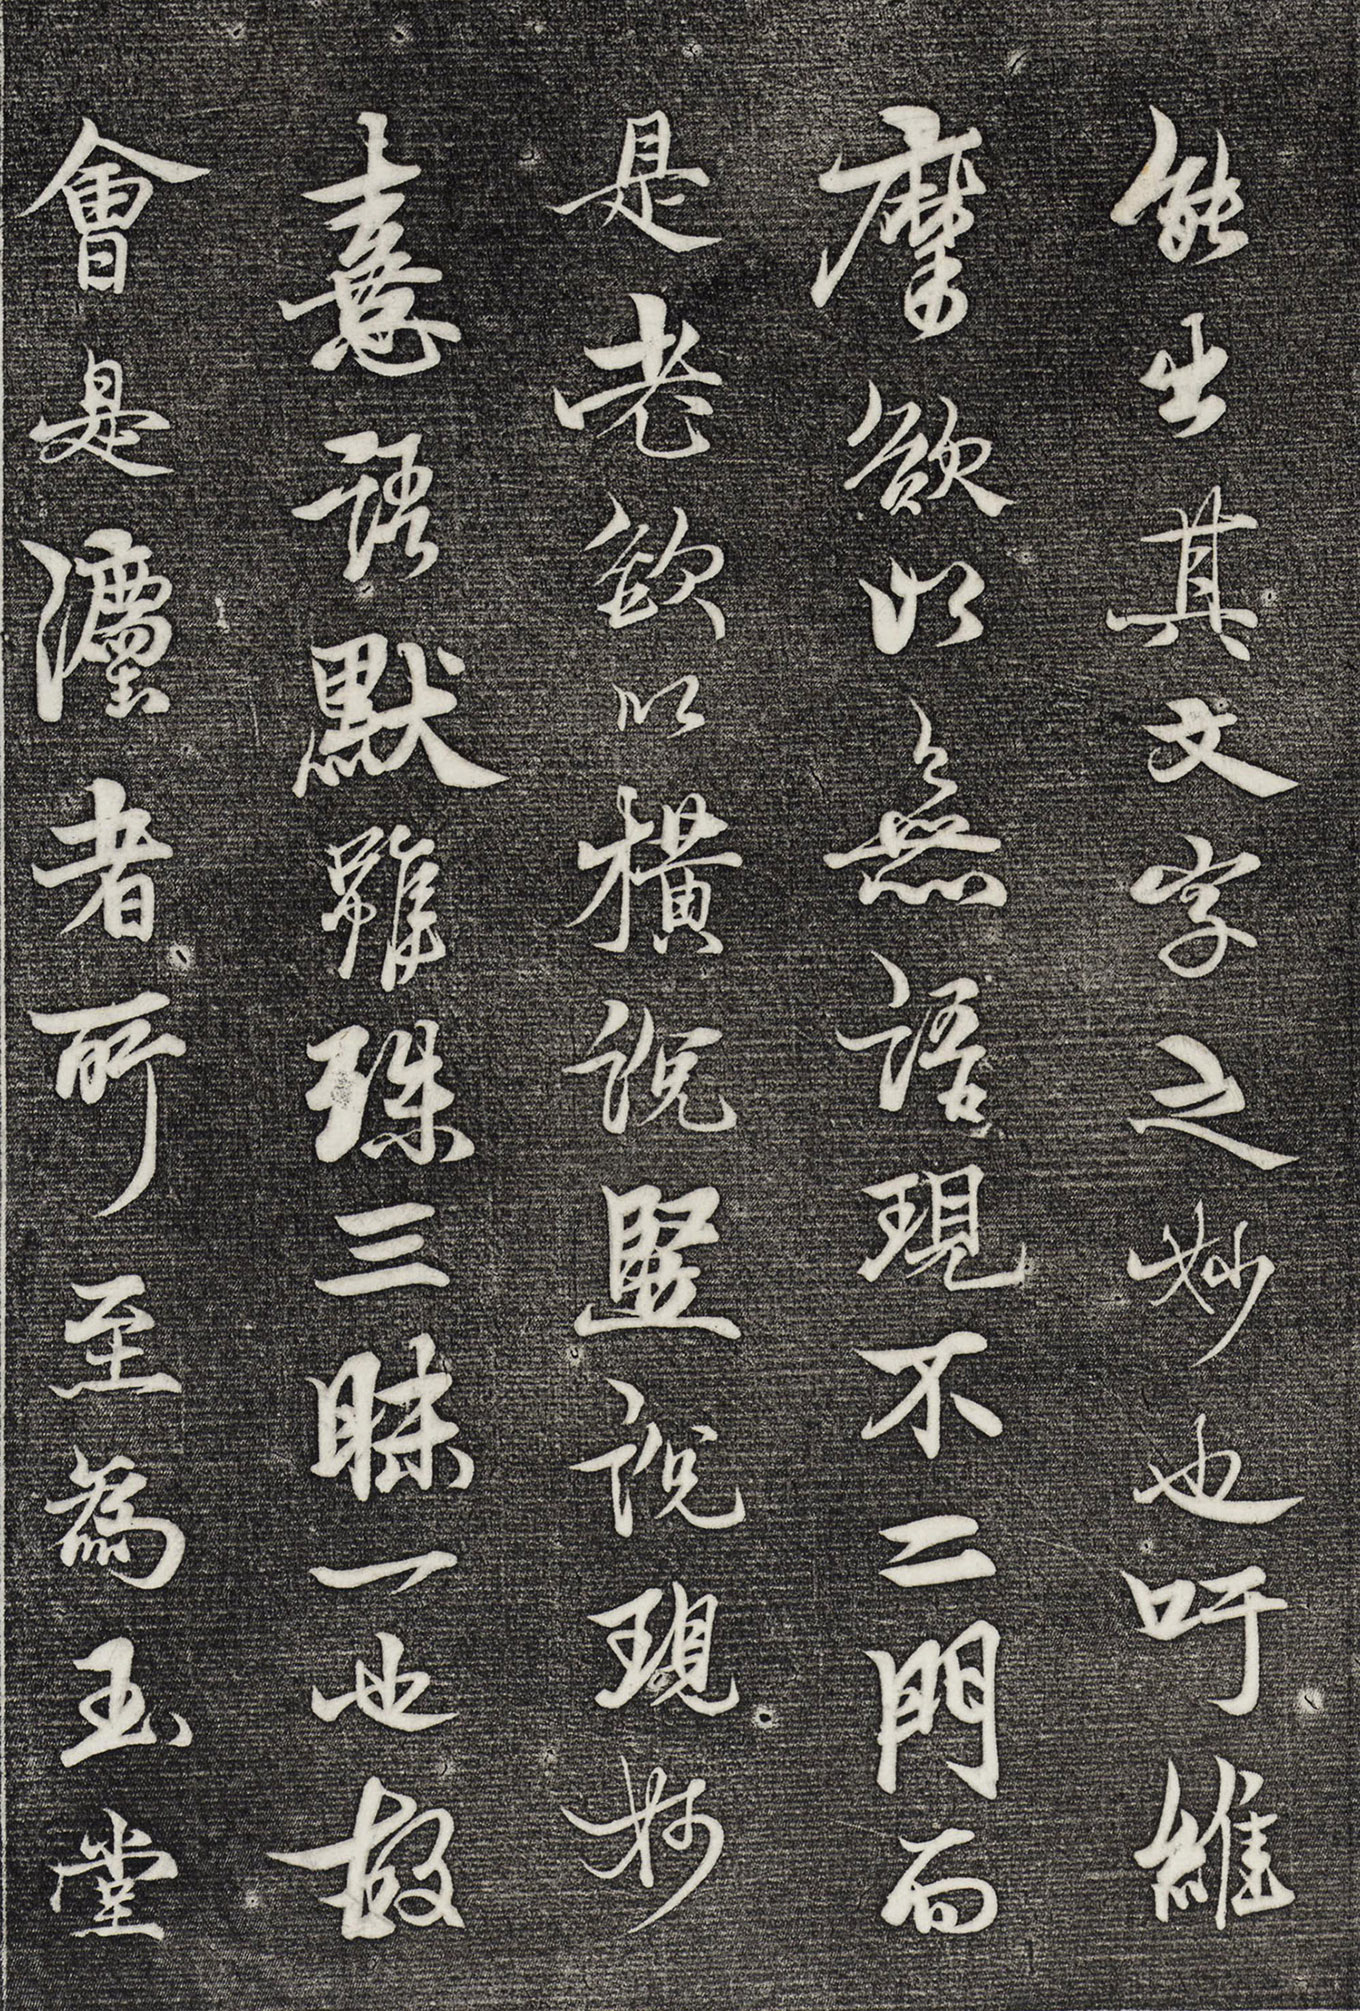 能出其文字之妙也吁維
摩欲以無語現不二門而
是老欲以橫說竪說現妙
喜語默雖殊三昧一也故
會是濹者所至為玉堂